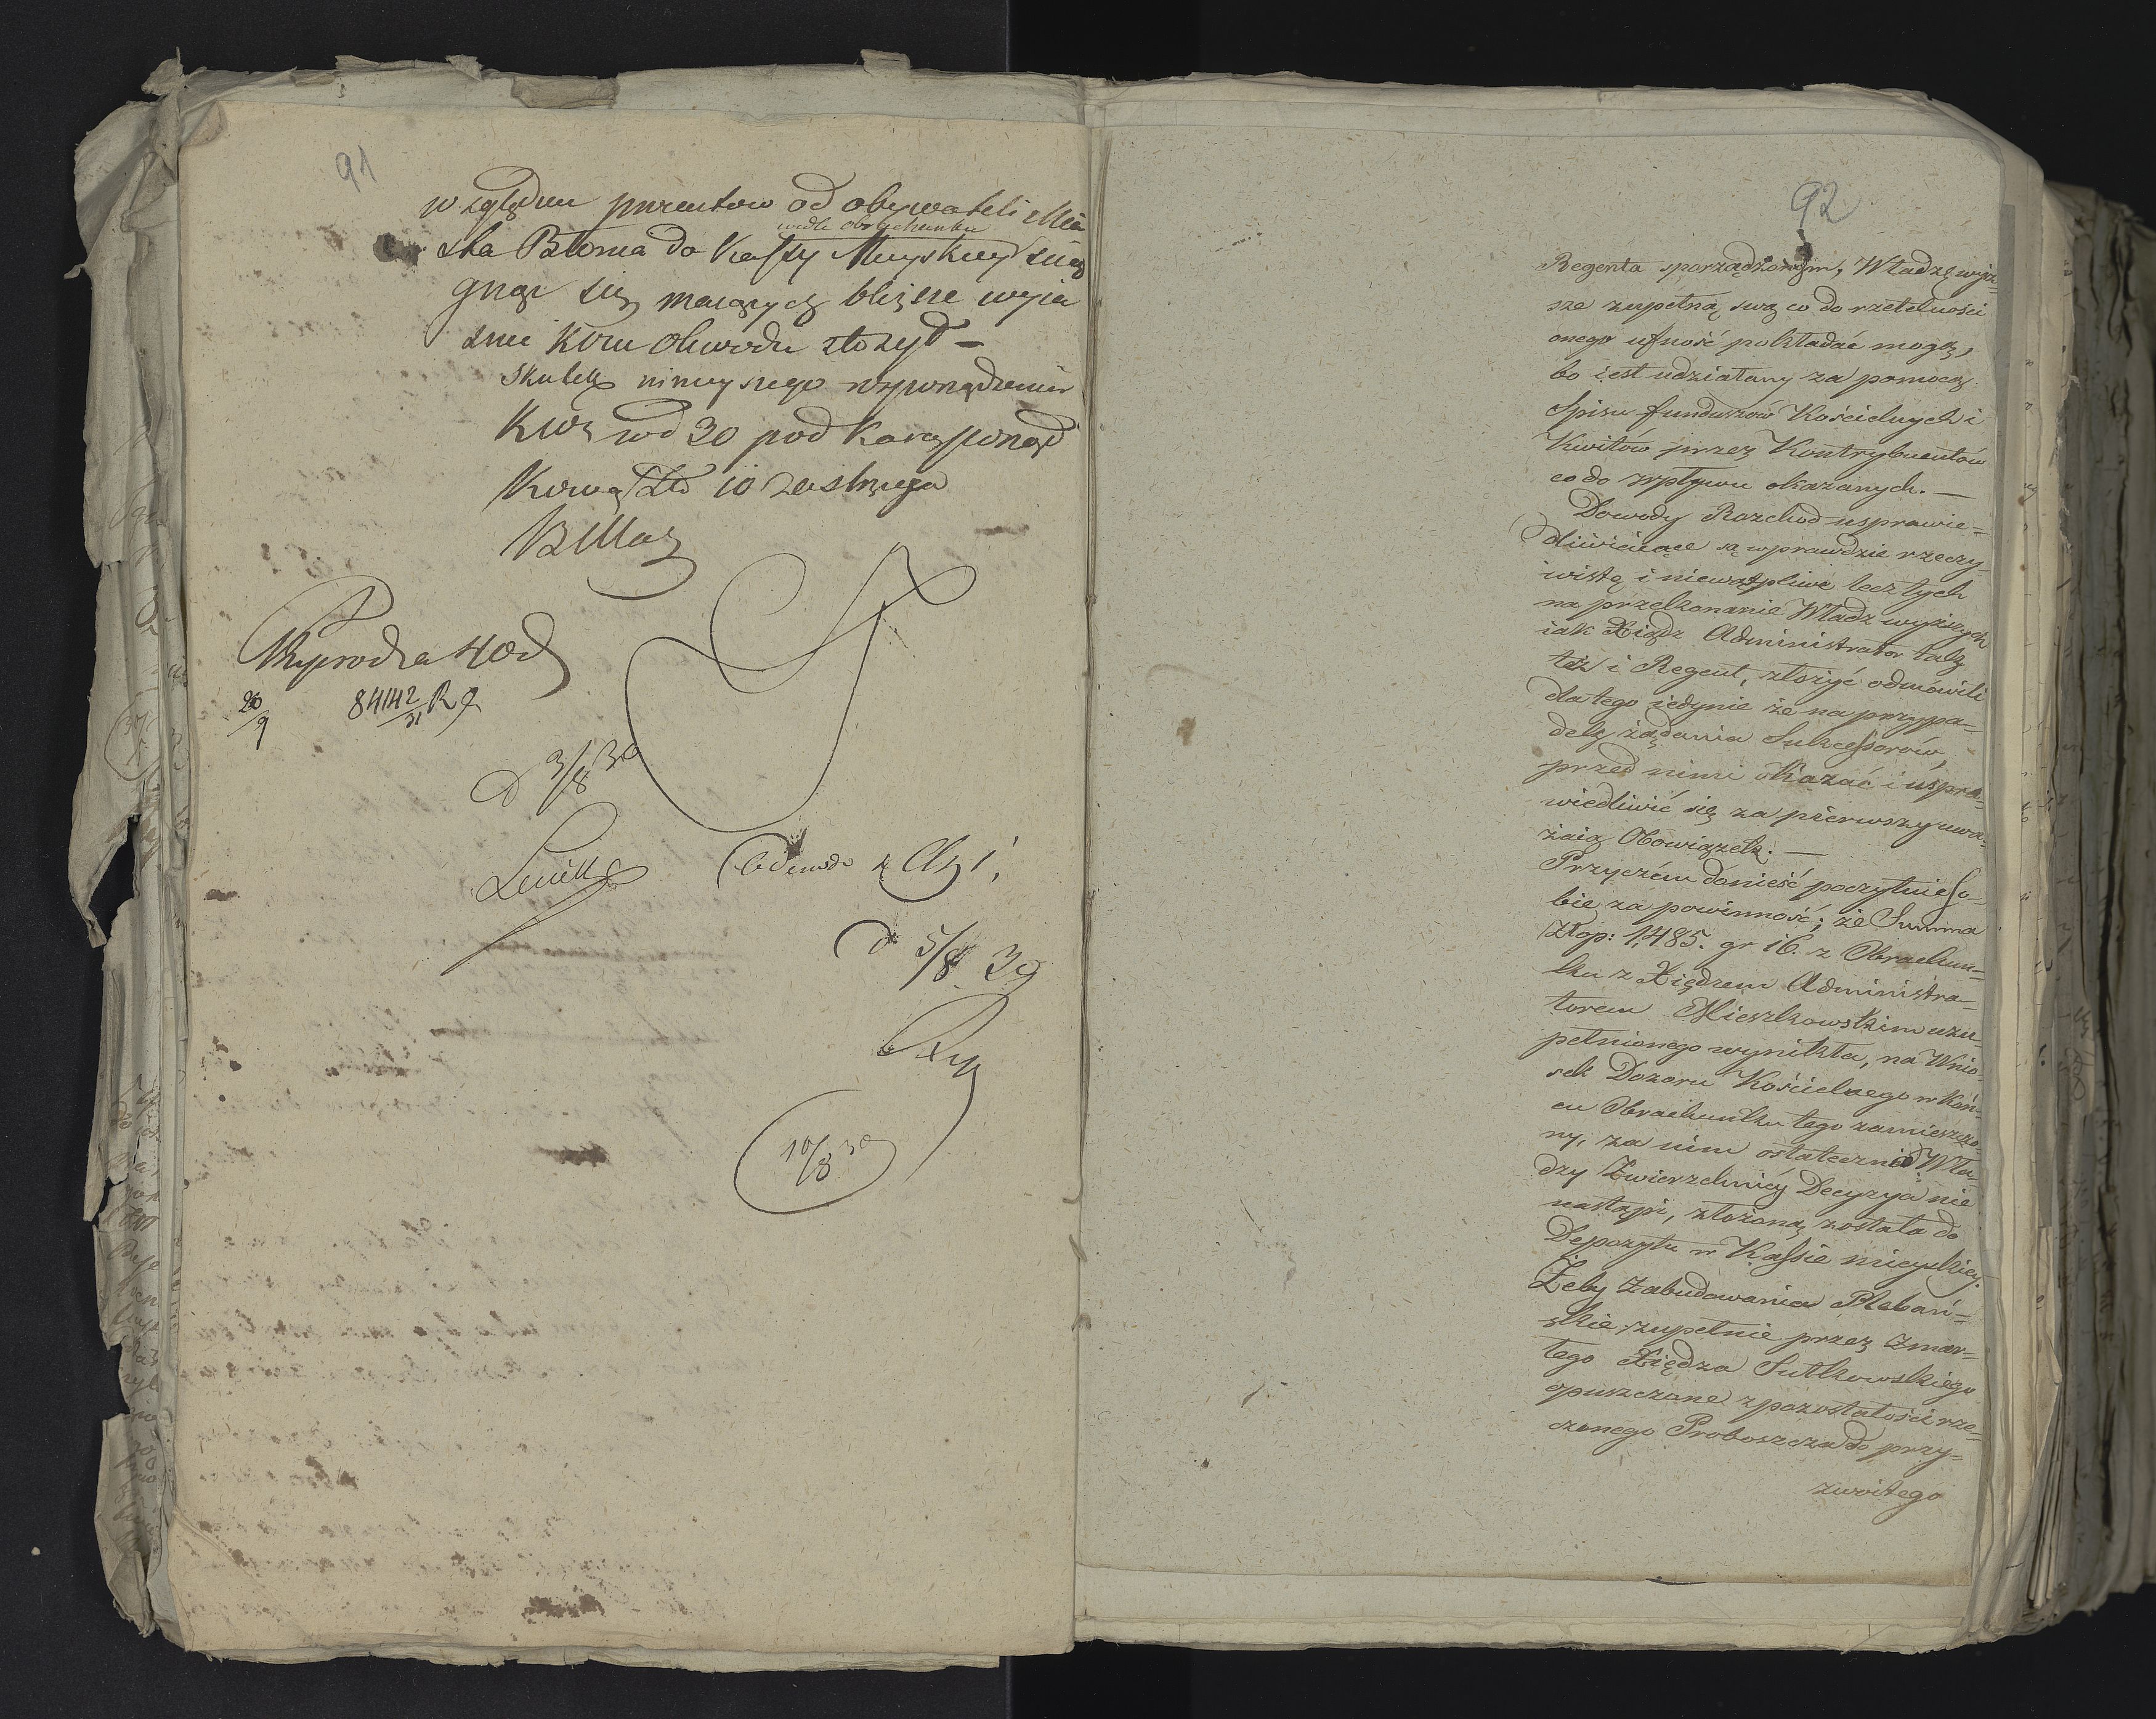 91
względem procentow od obywateli Mia
wedle obrachunku
sta Błonia do Kassy Mieyskiey sciąg
gnąć się maiących bliższe wyia
snie Kom Obwodu złożył —
skutek ninieyszego rozporządzenia
30 pod
zastrzega
d 3/8 39
d 5/8 39
10/8 39
92
Regenta sporządzonym, Władzę wyż=
sze zupełną swą co do rzetelności
onego ufność pokładać mogą,
bo iest udziałany za pomocą
Spisu funduszów Kościelnych i
Kwitów przez Kontrybuentów
co do wpływu okazanych. —
Dowody Rozchod usprawie=
dliwiaiące są wprawdzie rzeczy
wistę i niewątpliwe lecz tych
na przekonanie Władz wyższych
iak Xiądz Administrator tak
też i Regent, złożyć odmówili
dla tego iedynie że na przypa=
dek żądania Sukcessorów,
przed nimi okazać i uspra=
wiedliwić się za pierwszy uwa=
żaią Obowiązek. —
Przyczém donieść poczytuie so=
bie za powinność; że Summa
Złop: 1,485. gr 16. z Obrachun=
ku z Xiędzem Administra=
torem Mieszkowskim uzu=
pełnionego wynikła, na Wnio=
sek Dozoru Kościelnego w koń=
cu Obrachunku tego zamieszczo=
ny, za nim ostateczna Wła=
dzy Zwierzchniéy Decyzya nie
nastąpi, złożoną została do
Depozytu w Kassie mieyskiey.
Żeby Zabudowania Plebań=
skie zupełnie przez Zmar=
łego Xiędza Sutkowskiego
opuszczone z pozostałości rze=
czonego Proboszcza do przy=
zwoitego